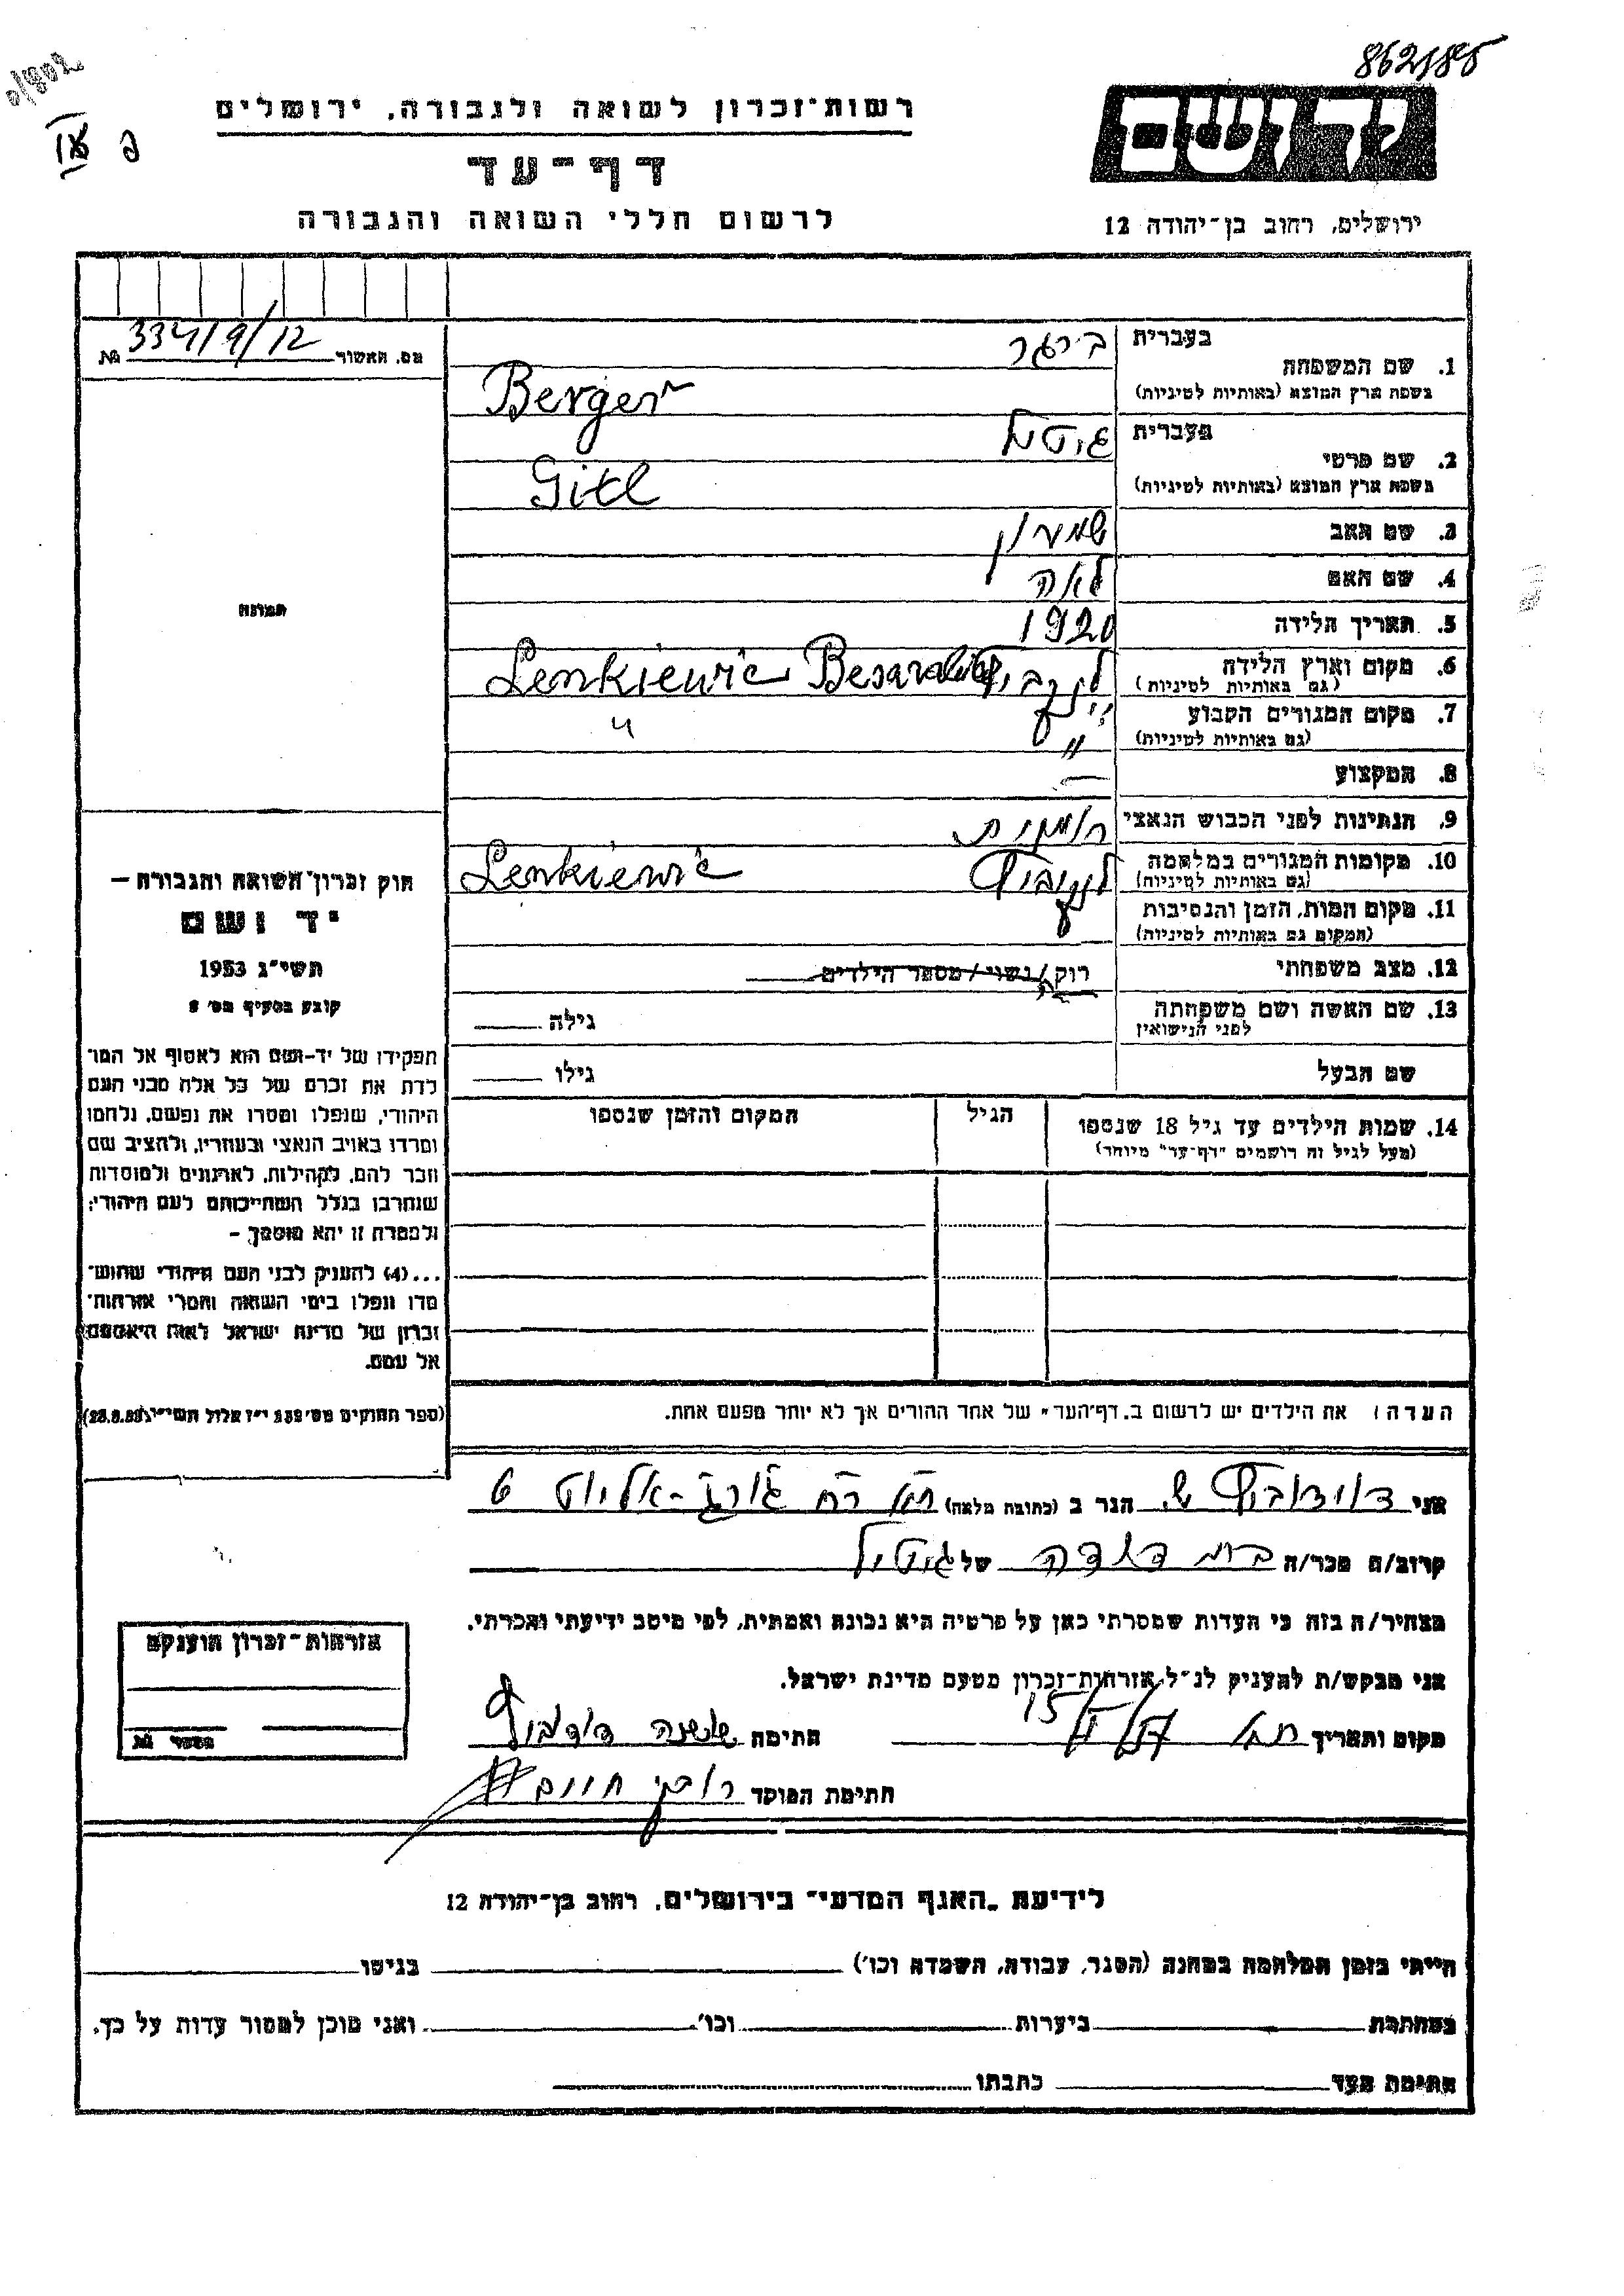 862185
רשות־זכרון לשואה ולגבורה, ירושלים
דף־עד
לרשום חללי השואה והגבורה
ירושלים, רחוב בן־יהודה 12
מס. האשור 334/9/12 №
בעברית
1. שם המשפחה
בשפת ארץ המוצא (באותיות לטיניות)
ברגר
Berger
בעברית
2. שם פרטי
בשפת ארץ המוצא (באותיות לטיניות)
גיטל
Gitl
3. שם האב שמעון
4. שם האם לאה
5. תאריך הלידה 1920
6. מקום וארץ הלידה
(גם באותיות לטיניות)
Lenkiewic
7. מקום המגורים הקבוע
(גם באותיות לטיניות)
"
8. המקצוע —
9. הנתינות לפני הכבוש הנאצי רומנית
10. מקומות המגורים במלחמה
(גם באותיות לטיניות)
Lenkiewic
11. מקום המות, הזמן והנסיבות
(המקום גם באותיות לטיניות)
12. מצב משפחתי רוקה / נשוי / מספר הילדים
13. שם האשה ושם משפחתה
לפני הנישואין
גילה
שם הבעל גילו
14. שמות הילדים עד גיל 18 שנספו
(מעל לגיל זה רושמים "דף־עד" מיוחד)
הגיל
המקום והזמן שנספו
הערה: את הילדים יש לרשום ב„דף־העד" של אחד ההורים אך לא יותר מפעם אחת.
תמונה
חוק זכרון השואה והגבורה —
יד ושם
תשי"ג 1953
קובע בסעיף מס'
תפקידו של יד־ושם הוא לאסוף אל המו־
לדת את זכרם של כל אלה מבני העם
היהודי, שנפלו ומסרו את נפשם, נלחמו
ומרדו באויב הנאצי ובעוזריו, ולהציב שם
וזכר להם, לקהילות, לארגונים ולמוסדות
שנחרבו בגלל השתייכותם לעם היהודי;
ולמטרה זו יהא מוסמך, –
...(4) להעניק לבני העם היהודי שהוש־
מדו ונפלו בימי השואה והמרי אזרחות־
זכרון של מדינת ישראל לאות היאספם
אל עמם.
אני דוידוביץ ש. הגר ב (כתובת מלאה) ת"א רח' ג'ורג'־אליוט 6
קרוב/ה מכר/ה בת דודה של גיטל
מצהיר/ה בזה כי העדות שמסרתי כאן על פרטיה היא נכונה ואמתית, לפי מיטב ידיעתי והכרתי.
אני מבקש/ת להעניק לנ"ל אזרחות־זכרון מטעם מדינת ישראל.
מקום ותאריך חתימה שושנה דוידוביץ
חתימת הפוקד חיים
אזרחות־זכרון הוענקה
מספר №
לידיעת „האגף המדעי" בירושלים, רחוב בן־יהודה 12
הייתי בזמן המלחמה במחנה (הסגר, עבודה, השמדה וכו') בגיטו
במחתרת ביערות וכו' ואני מוכן למסור עדות על כך.
חתימת העד כתבתו